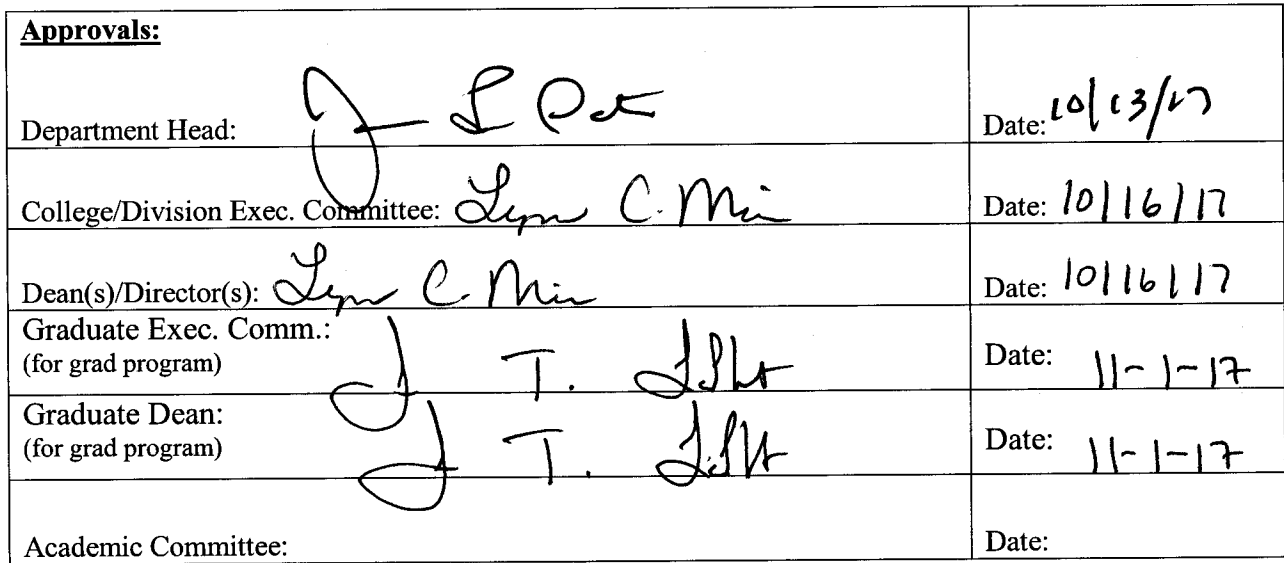 Approvals:
Department Head: J L Date: 10/13/17
College/Division Exec. Committee: Lynn C. Date: 10/16/17
Dean(s)/Director(s): Lynn C. Date: 10/16/17
Graduate Exec. Comm.:
(for grad program) J T. Date: 11-1-17
Graduate Dean:
(for grad program) J T. Date: 11-1-17
Academic Committee: Date: